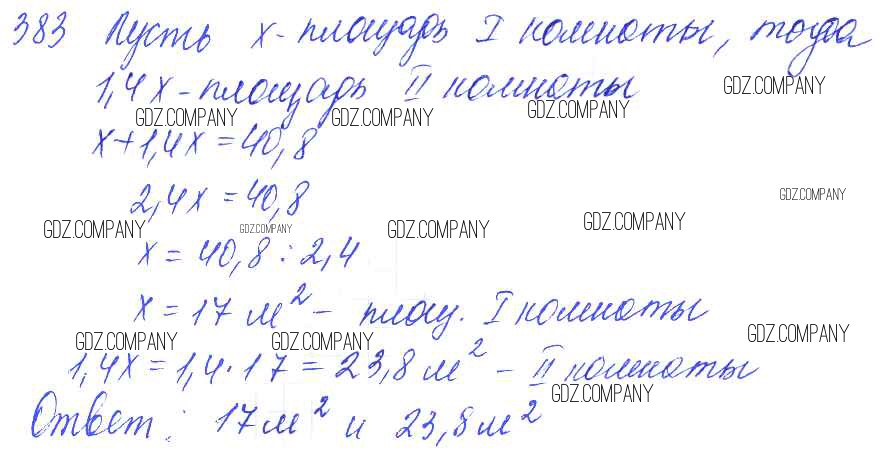 383 Пусть x - площадь I комнаты, тогда
1,4x - площадь II комнаты
GDZ.COMPANY
GDZ.COMPANY GDZ.COMPANY GDZ.COMPANY
x+1,4x=40,8
2,4x=40,8
GDZ.COMPANY
GDZ.COMPANY GDZ.COMPANY GDZ.COMPANY GDZ.COMPANY
x=40,8:2,4
x=17 м² - площ. I комнаты
GDZ.COMPANY GDZ.COMPANY GDZ.COMPANY
1,4x=1,4·17=23,8 м² - II комнаты
GDZ.COMPANY
Ответ: 17 м² и 23,8 м²